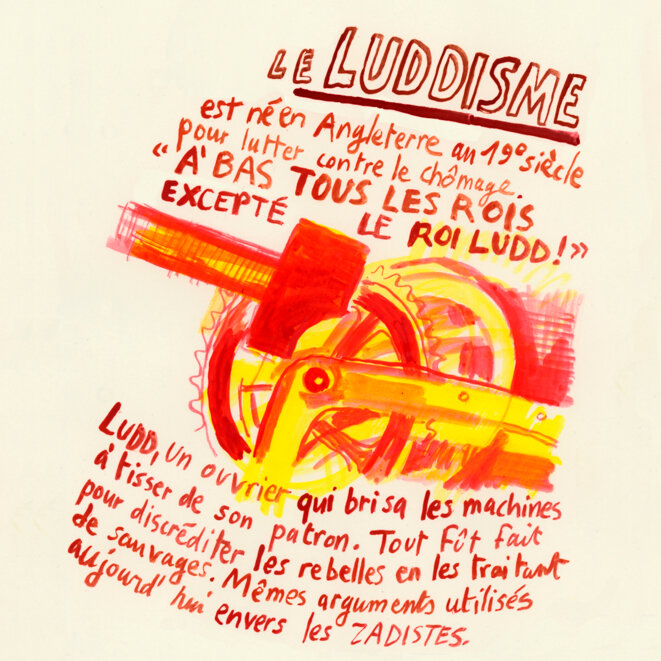 LE LUDDISME
est né en Angleterre au 19e siècle
pour lutter contre le chômage.
« À BAS TOUS LES ROIS
EXCEPTÉ LE ROI LUDD ! »
LUDD, un ouvrier qui brisa les machines
à tisser de son patron. Tout fût fait
pour discréditer les rebelles en les traitant
de sauvages. Mêmes arguments utilisés
aujourd'hui envers les ZADISTES.